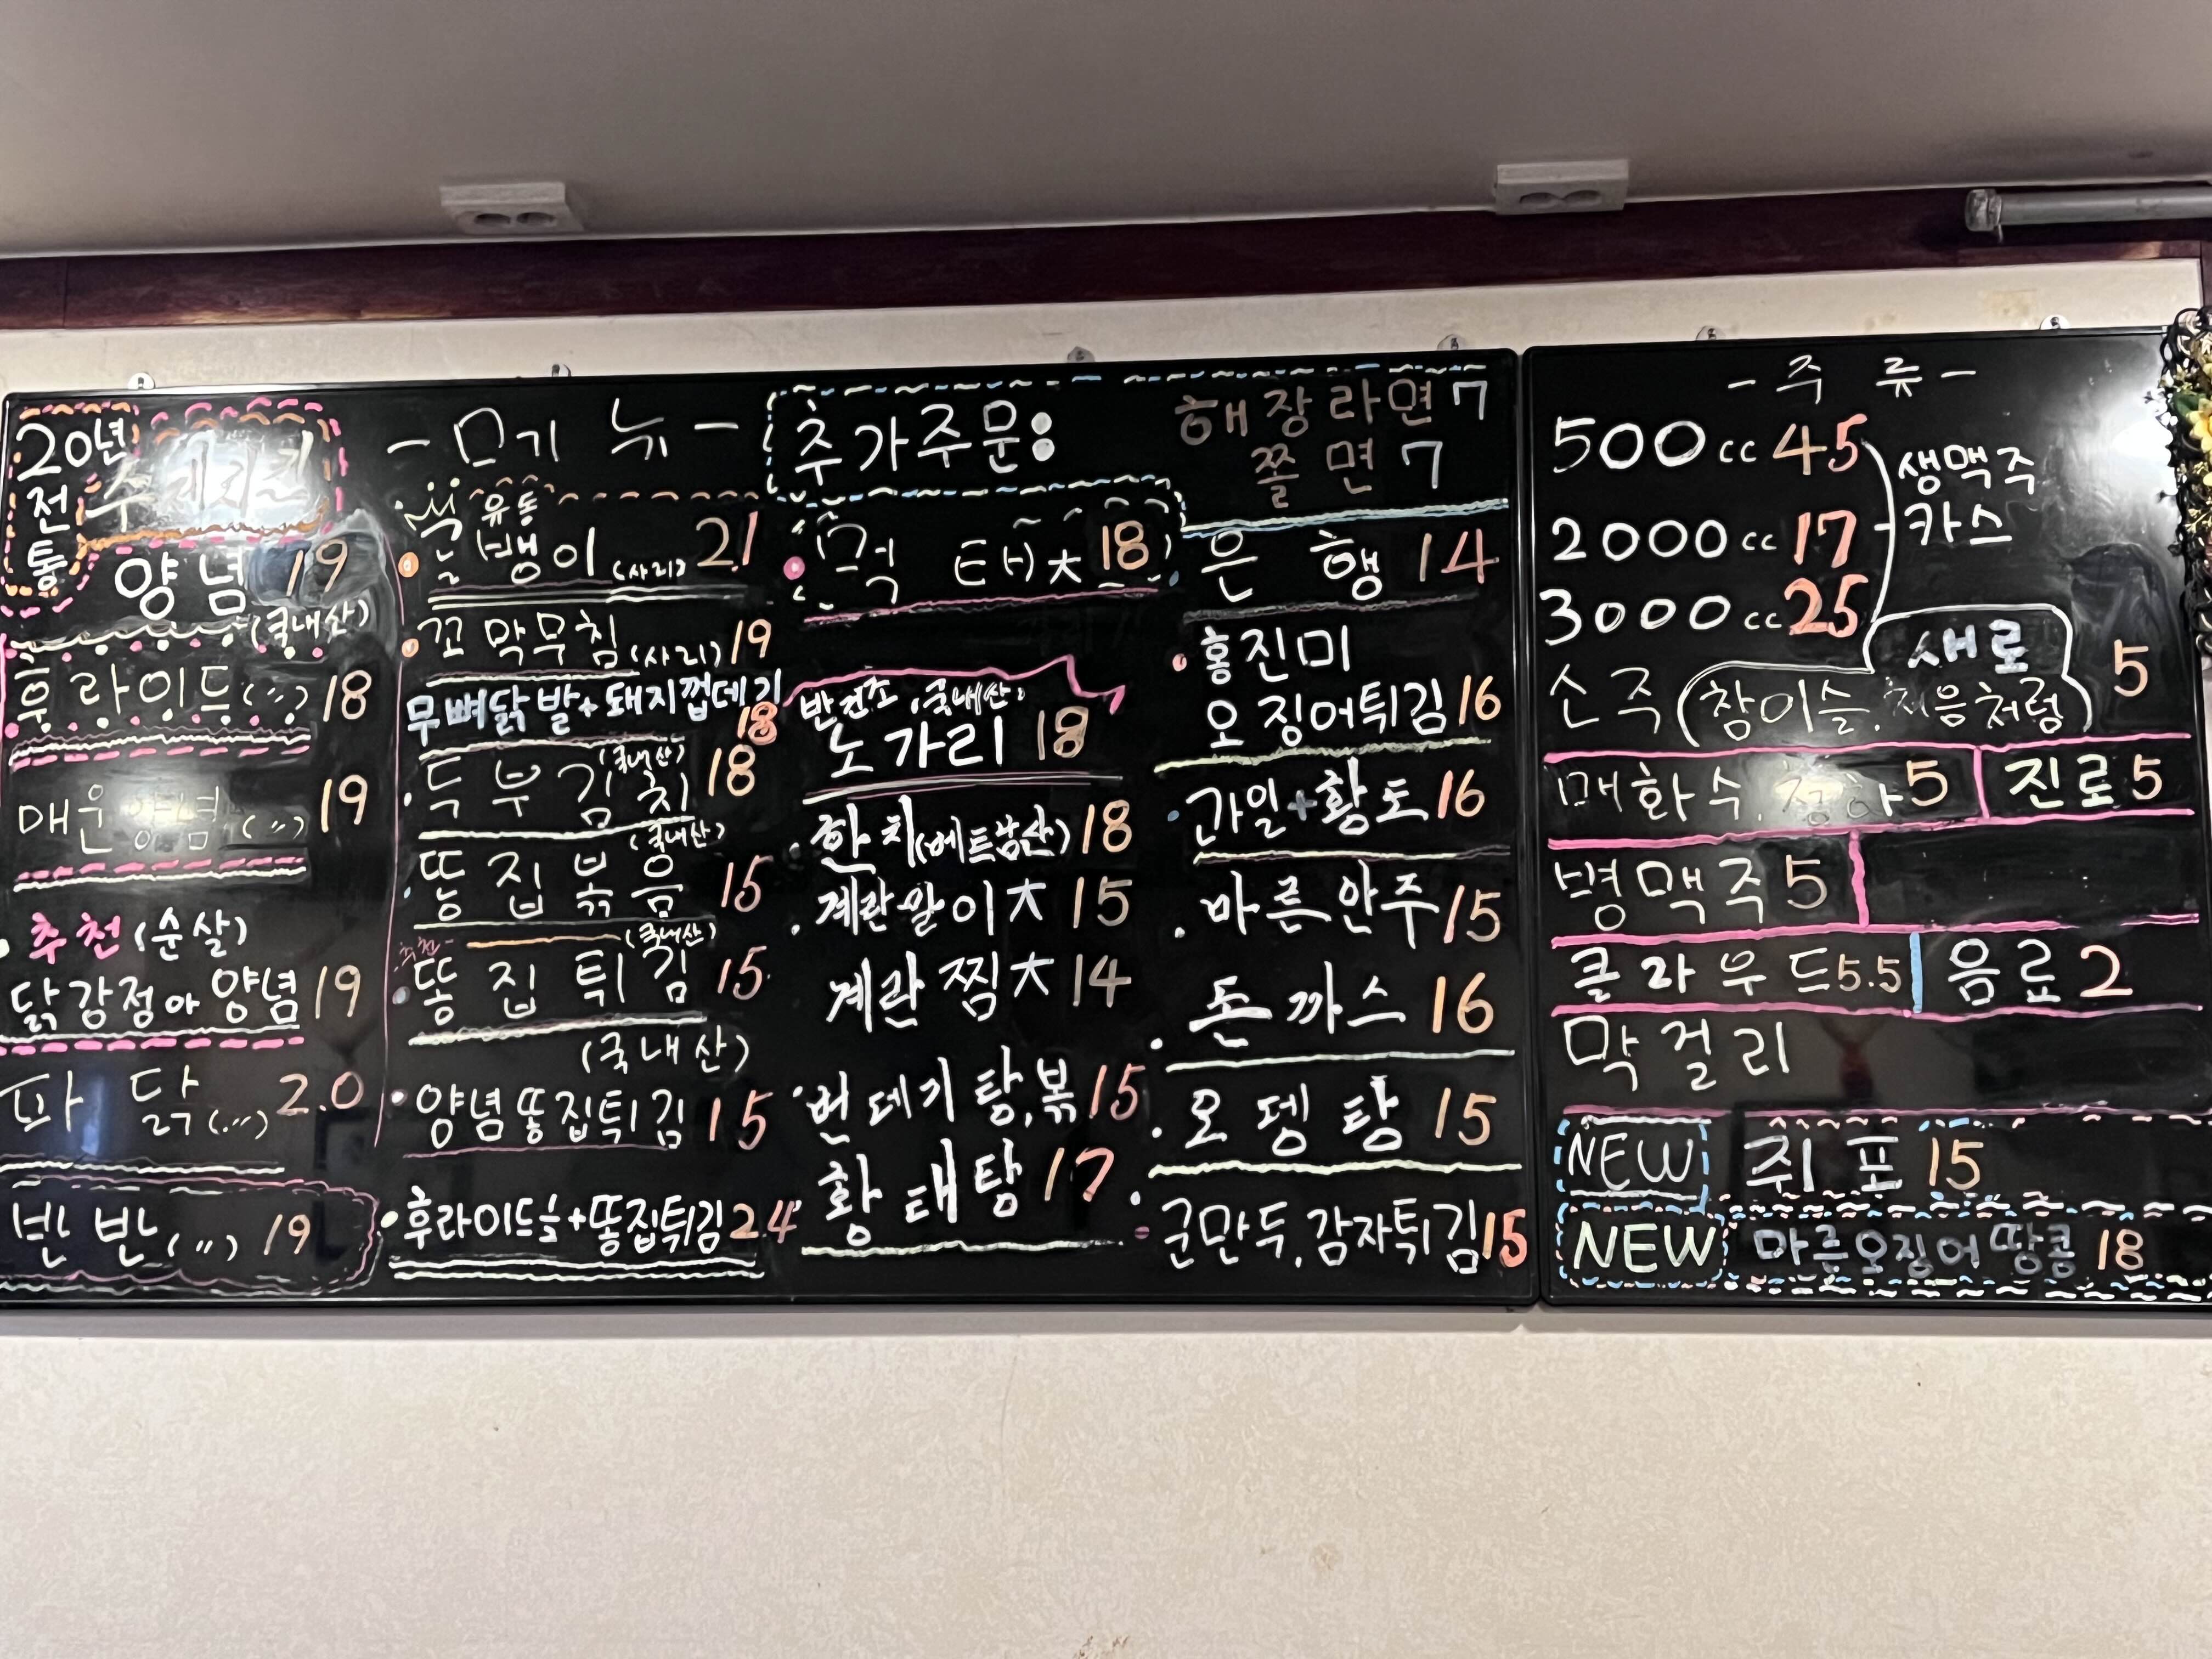 20년
전
통
양념 19
(국내산)
후라이드(〃) 18
매운양념(〃) 19
추천(순살)
닭강정아양념 19
파닭(〃) 2.0
반반(〃) 19
- 메뉴 -
유동
골뱅이(사리) 2.1
꼬막무침(사리) 19
무뼈닭발+돼지껍데기
18
(국내산)
두부김치 18
(국내산)
똥집볶음 15
추천- (국내산)
똥집튀김 15
(국내산)
양념똥집튀김 15
후라이드½+똥집튀김 2.4
추가주문:
해장라면 7
쫄면 7
먹태大 18
반건조 국내산
노가리 18
한치(베트남산) 18
계란말이大 15
계란찜大 14
번데기탕,볶 15
황태탕 17
은행 14
홍진미
오징어튀김 16
과일+황도 16
마른안주 15
돈까스 16
오뎅탕 15
군만두,감자튀김 15
- 주류 -
500cc 45
2000cc 17
3000cc 25
생맥주
카스
새로
소주(참이슬,처음처럼) 5
매화수,청하 5 진로 5
병맥주 5
클라우드 5.5 음료 2
막걸리
NEW 쥐포 15
NEW 마른오징어땅콩 18